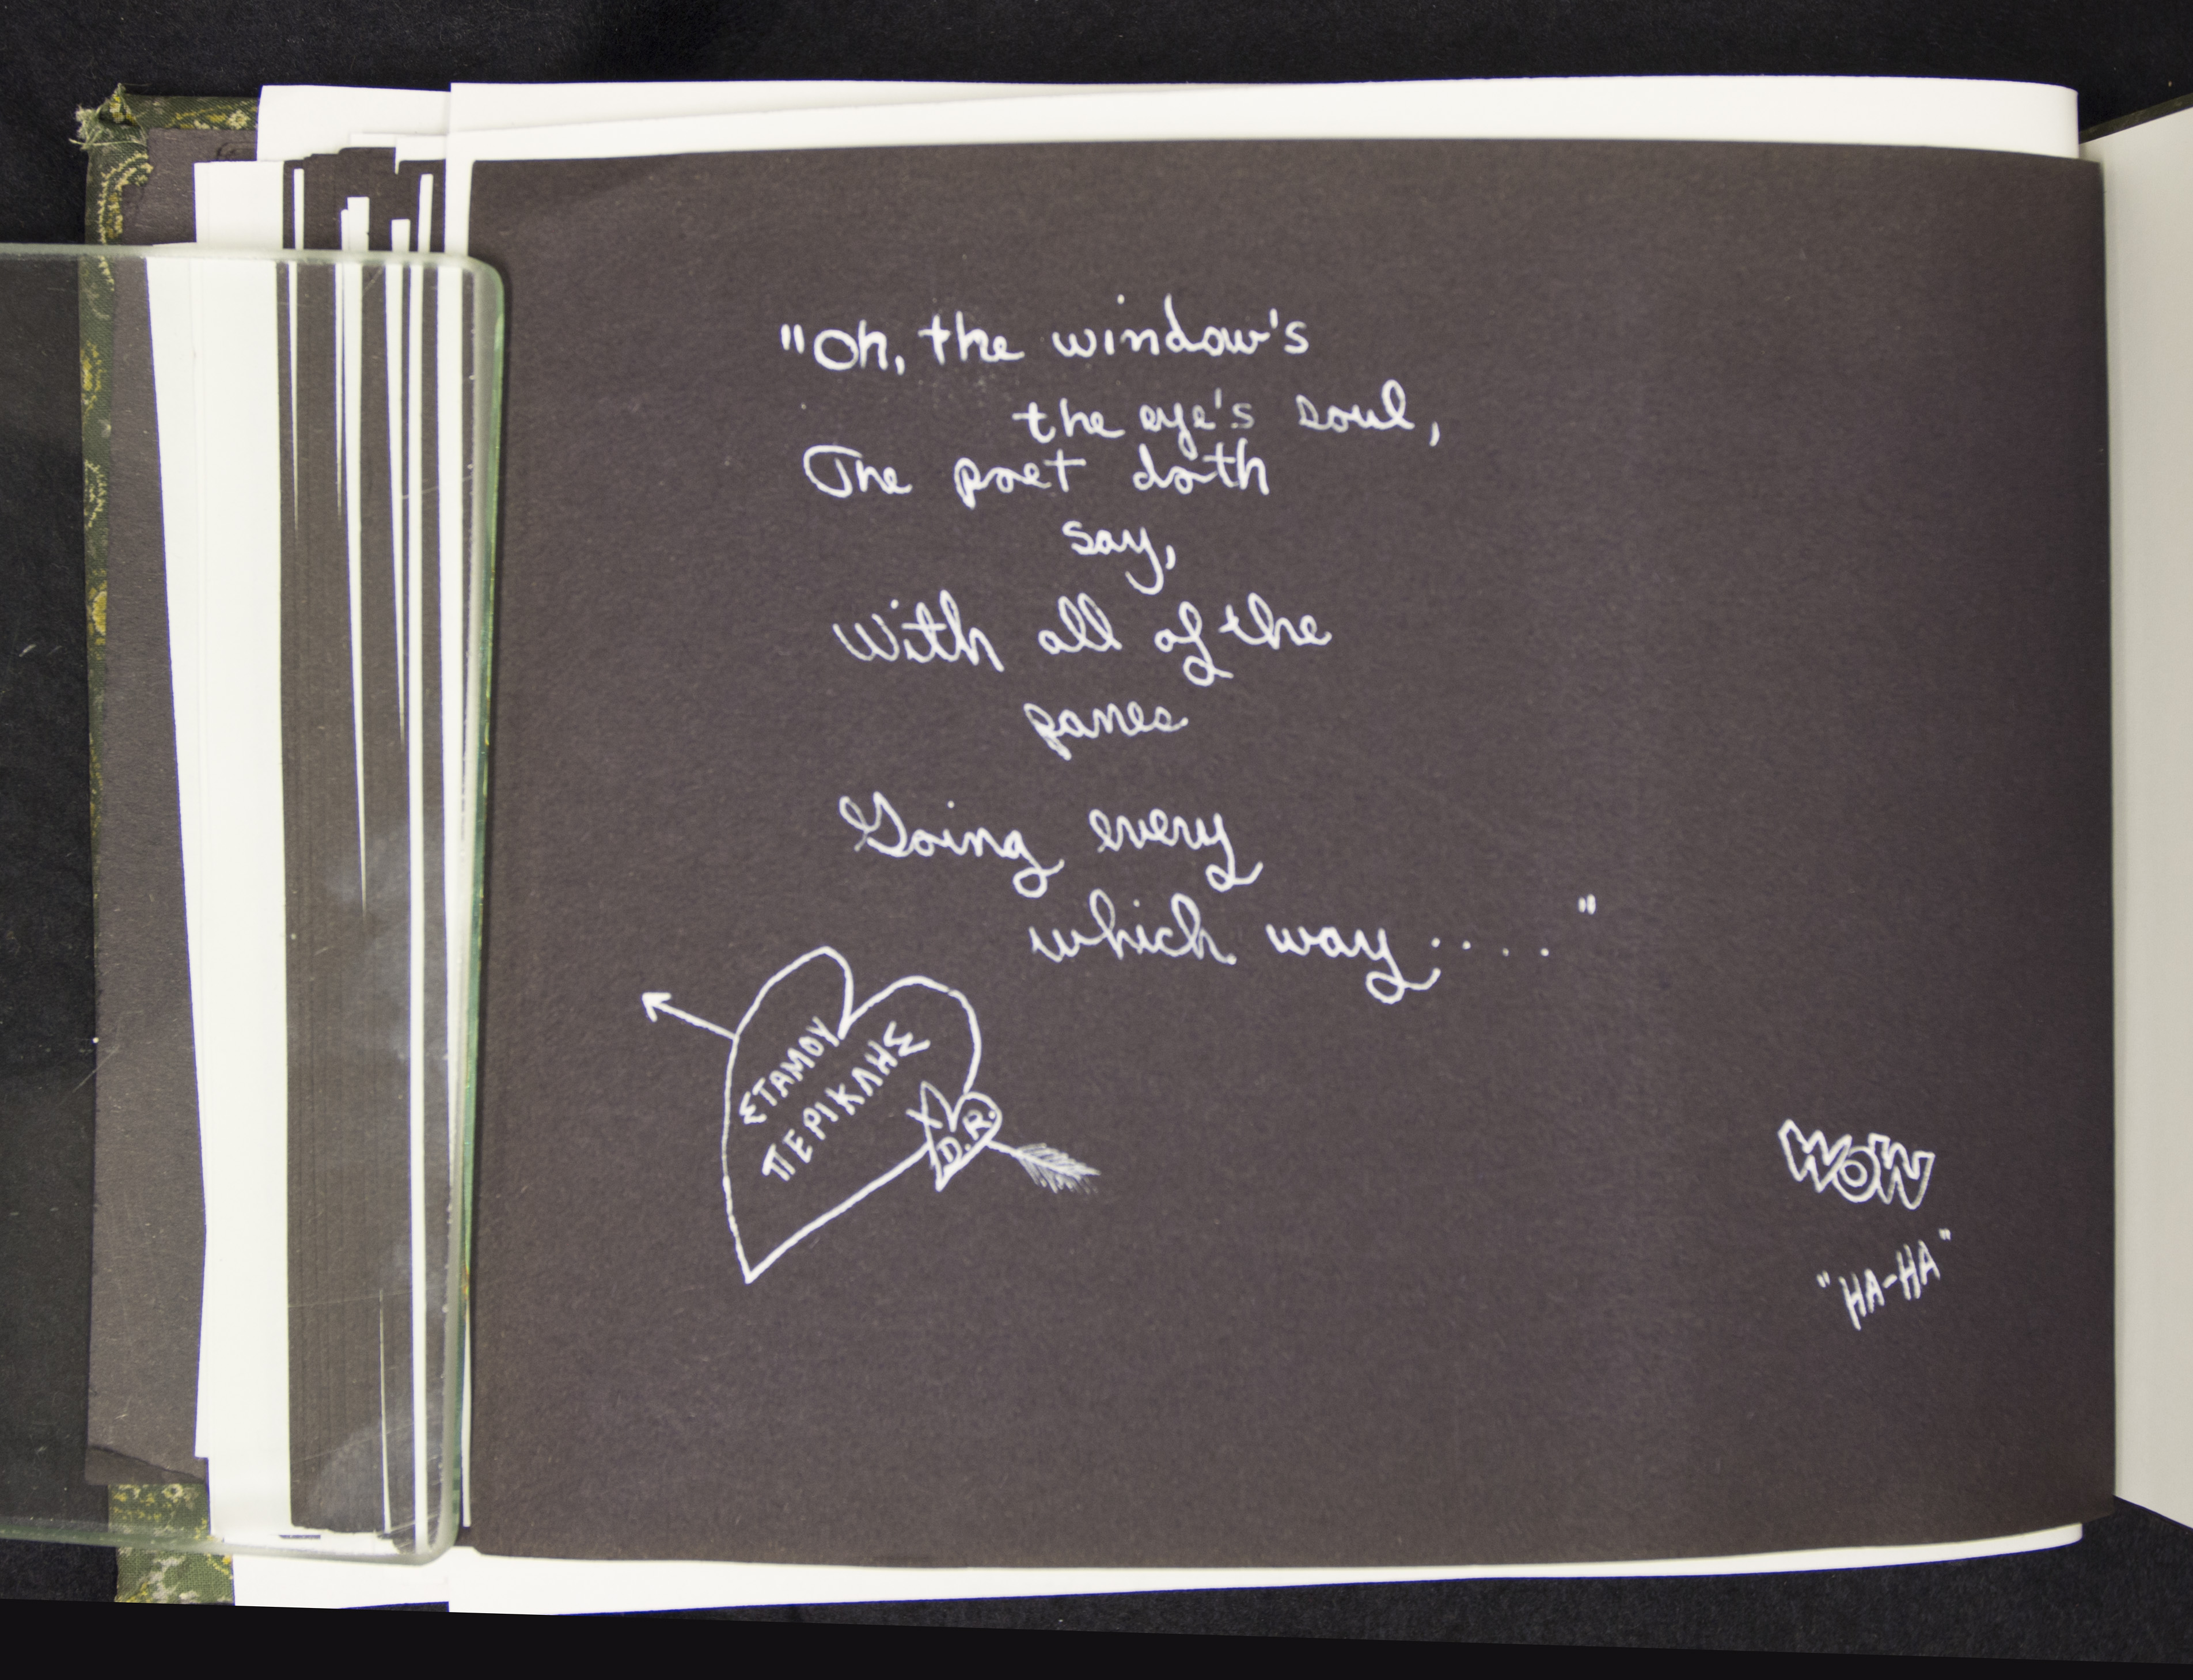 "Oh, the window's
the eye's soul,
The poet doth
say,
With all of the
panes
Going every
which way...."
ΣΤΑΜΟΥ
ΠΕΡΙΚΛΗΣ
D.R.
WOW
"HA-HA"